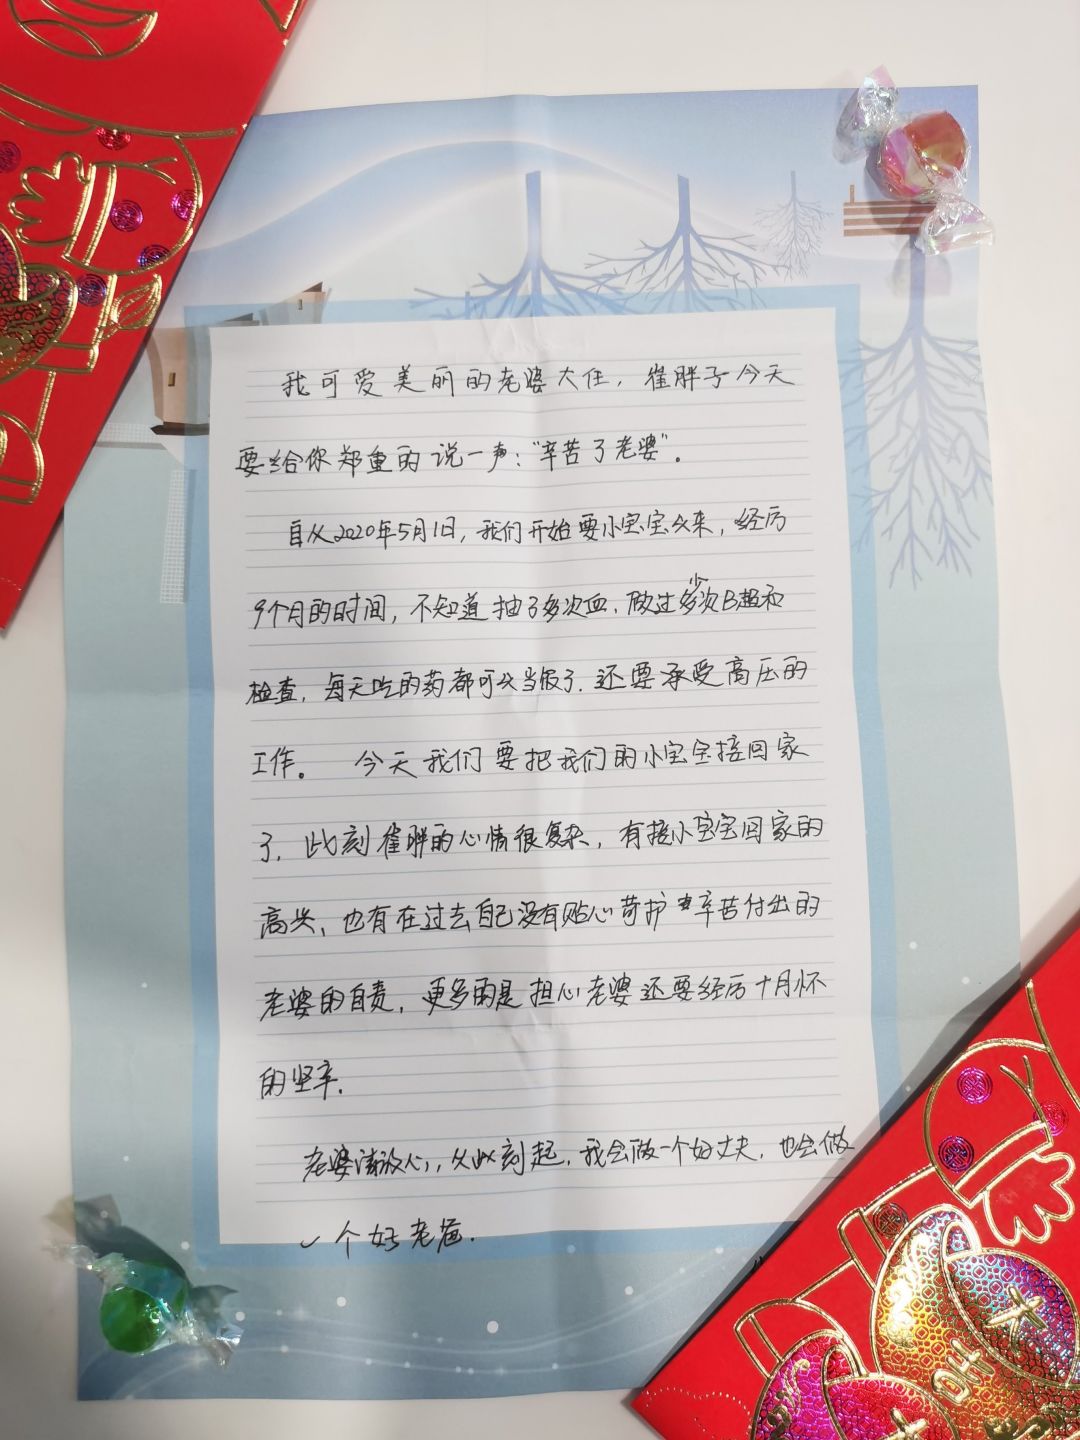 我可爱美丽的老婆大任，崔胖子今天
要给你郑重的说一声："辛苦了老婆"。
自从2020年5月1日，我们开始要小宝宝以来，经历
9个月的时间，不知道抽了多次血，做过多少次B超和
检查，每天吃的药都可以当饭了，还要承受高压的
工作。 今天我们要把我们的小宝宝接回家
了，此刻崔胖的心情很复杂，有接小宝宝回家的
高兴，也有在过去自己没有贴心苛护辛苦付出的
老婆的自责，更多的是担心老婆还要经历十月怀
的坚辛.
老婆请放心，从此刻起，我会做一个好丈夫，也会做
一个好老爸.
大吉